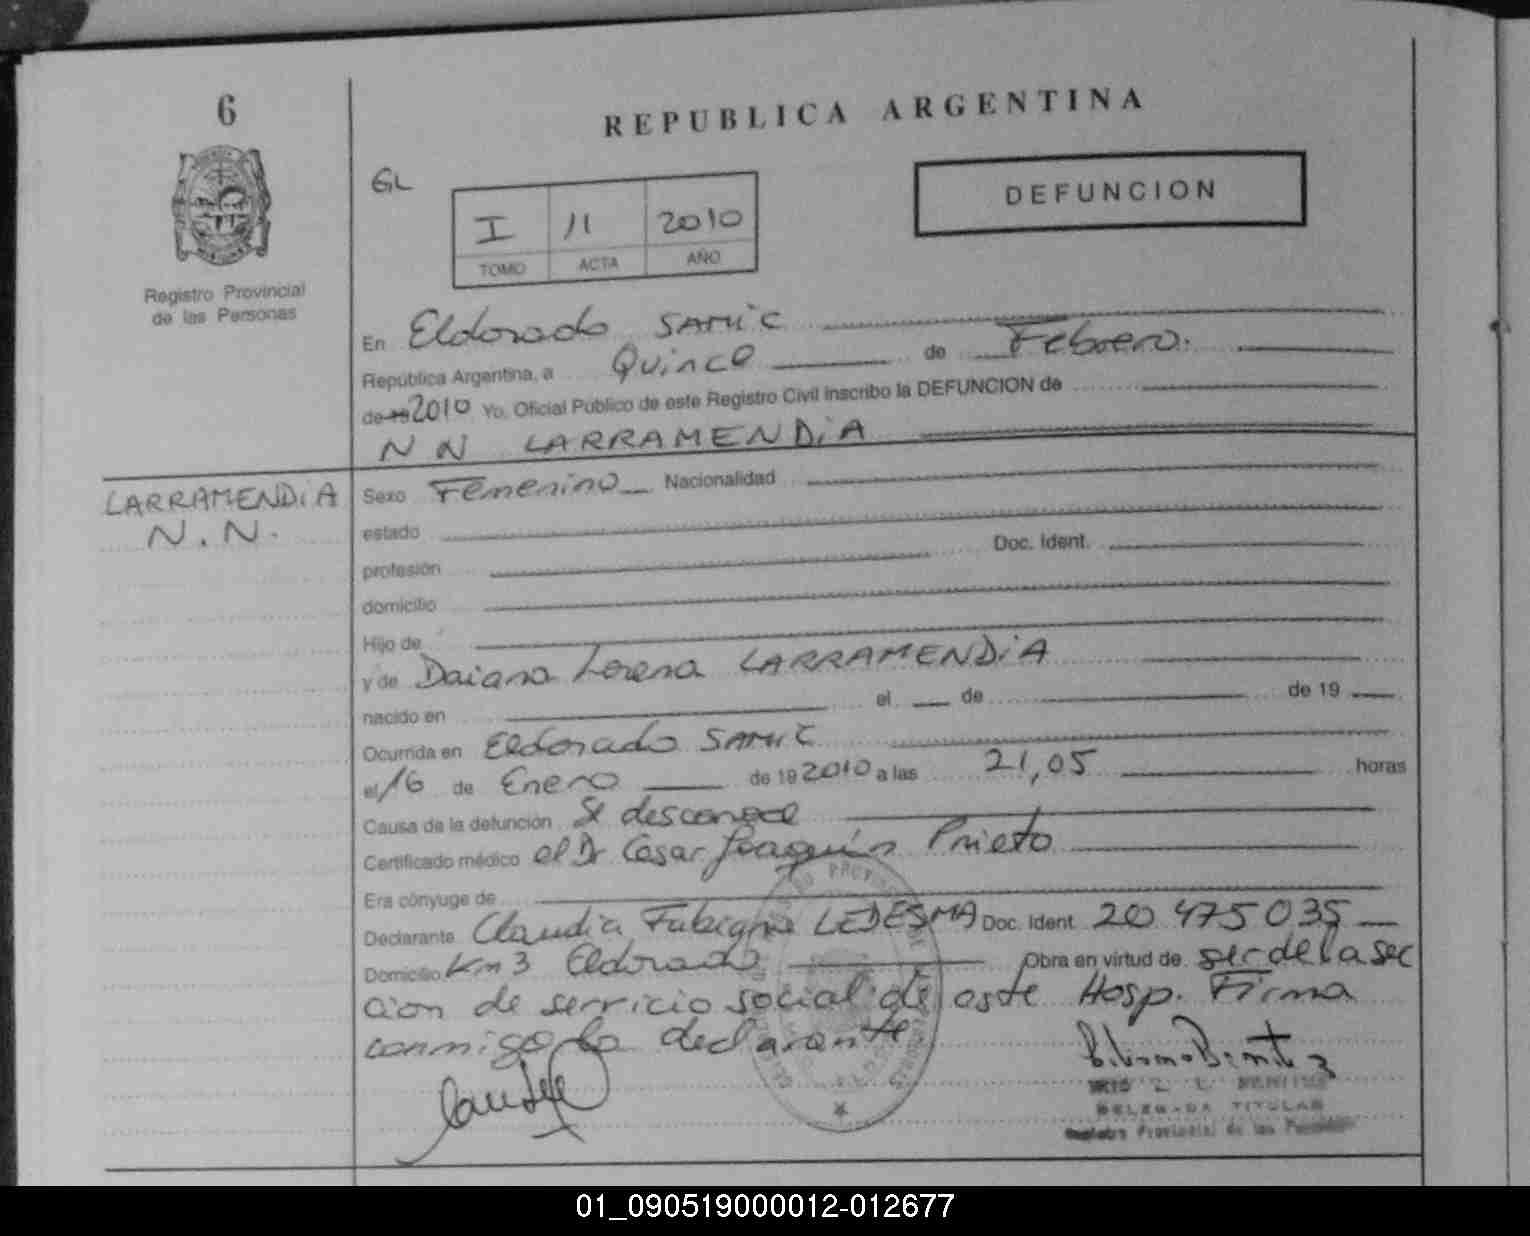 6
REPUBLICA ARGENTINA
GL
I 11 2010
TOMO ACTA AÑO
DEFUNCION
Registro Provincial
de las Personas
En Eldorado SAMIC
República Argentina, a Quince de Febrero.
de 19 2010 Yo, Oficial Público de este Registro Civil inscribo la DEFUNCION de
N N LARRAMENDIA
LARRAMENDIA
N.N.
Sexo Femenino Nacionalidad
estado
profesión Doc. Ident.
domicilio
Hijo de
y de Daiana Lorena LARRAMENDIA
nacido en el de de 19
Ocurrida en Eldorado SAMIC
el 16 de Enero de 19 2010 a las 21,05 horas
Causa de la defunción Se desconoce
Certificado médico el Dr Cesar Joaquín Prieto
Era cónyuge de
Declarante Claudia Fabiana LEDESMA Doc. Ident 20 475 035
Domicilio Km 3 Eldorado Obra en virtud de ser de la sec
cion de servicio social de este Hosp. Firma
conmigo la declarante
DELEGADA TITULAR
Registro Provincial de las Personas
01_090519000012-012677